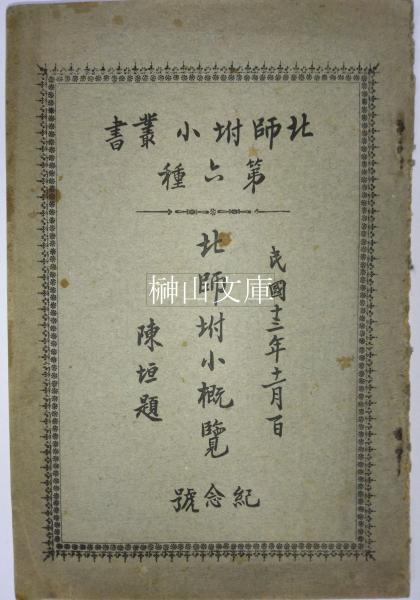 北師坿小叢書
第六種
民國十三年十二月一日
北師坿小概覽
陳垣題
紀念號
榊山文庫